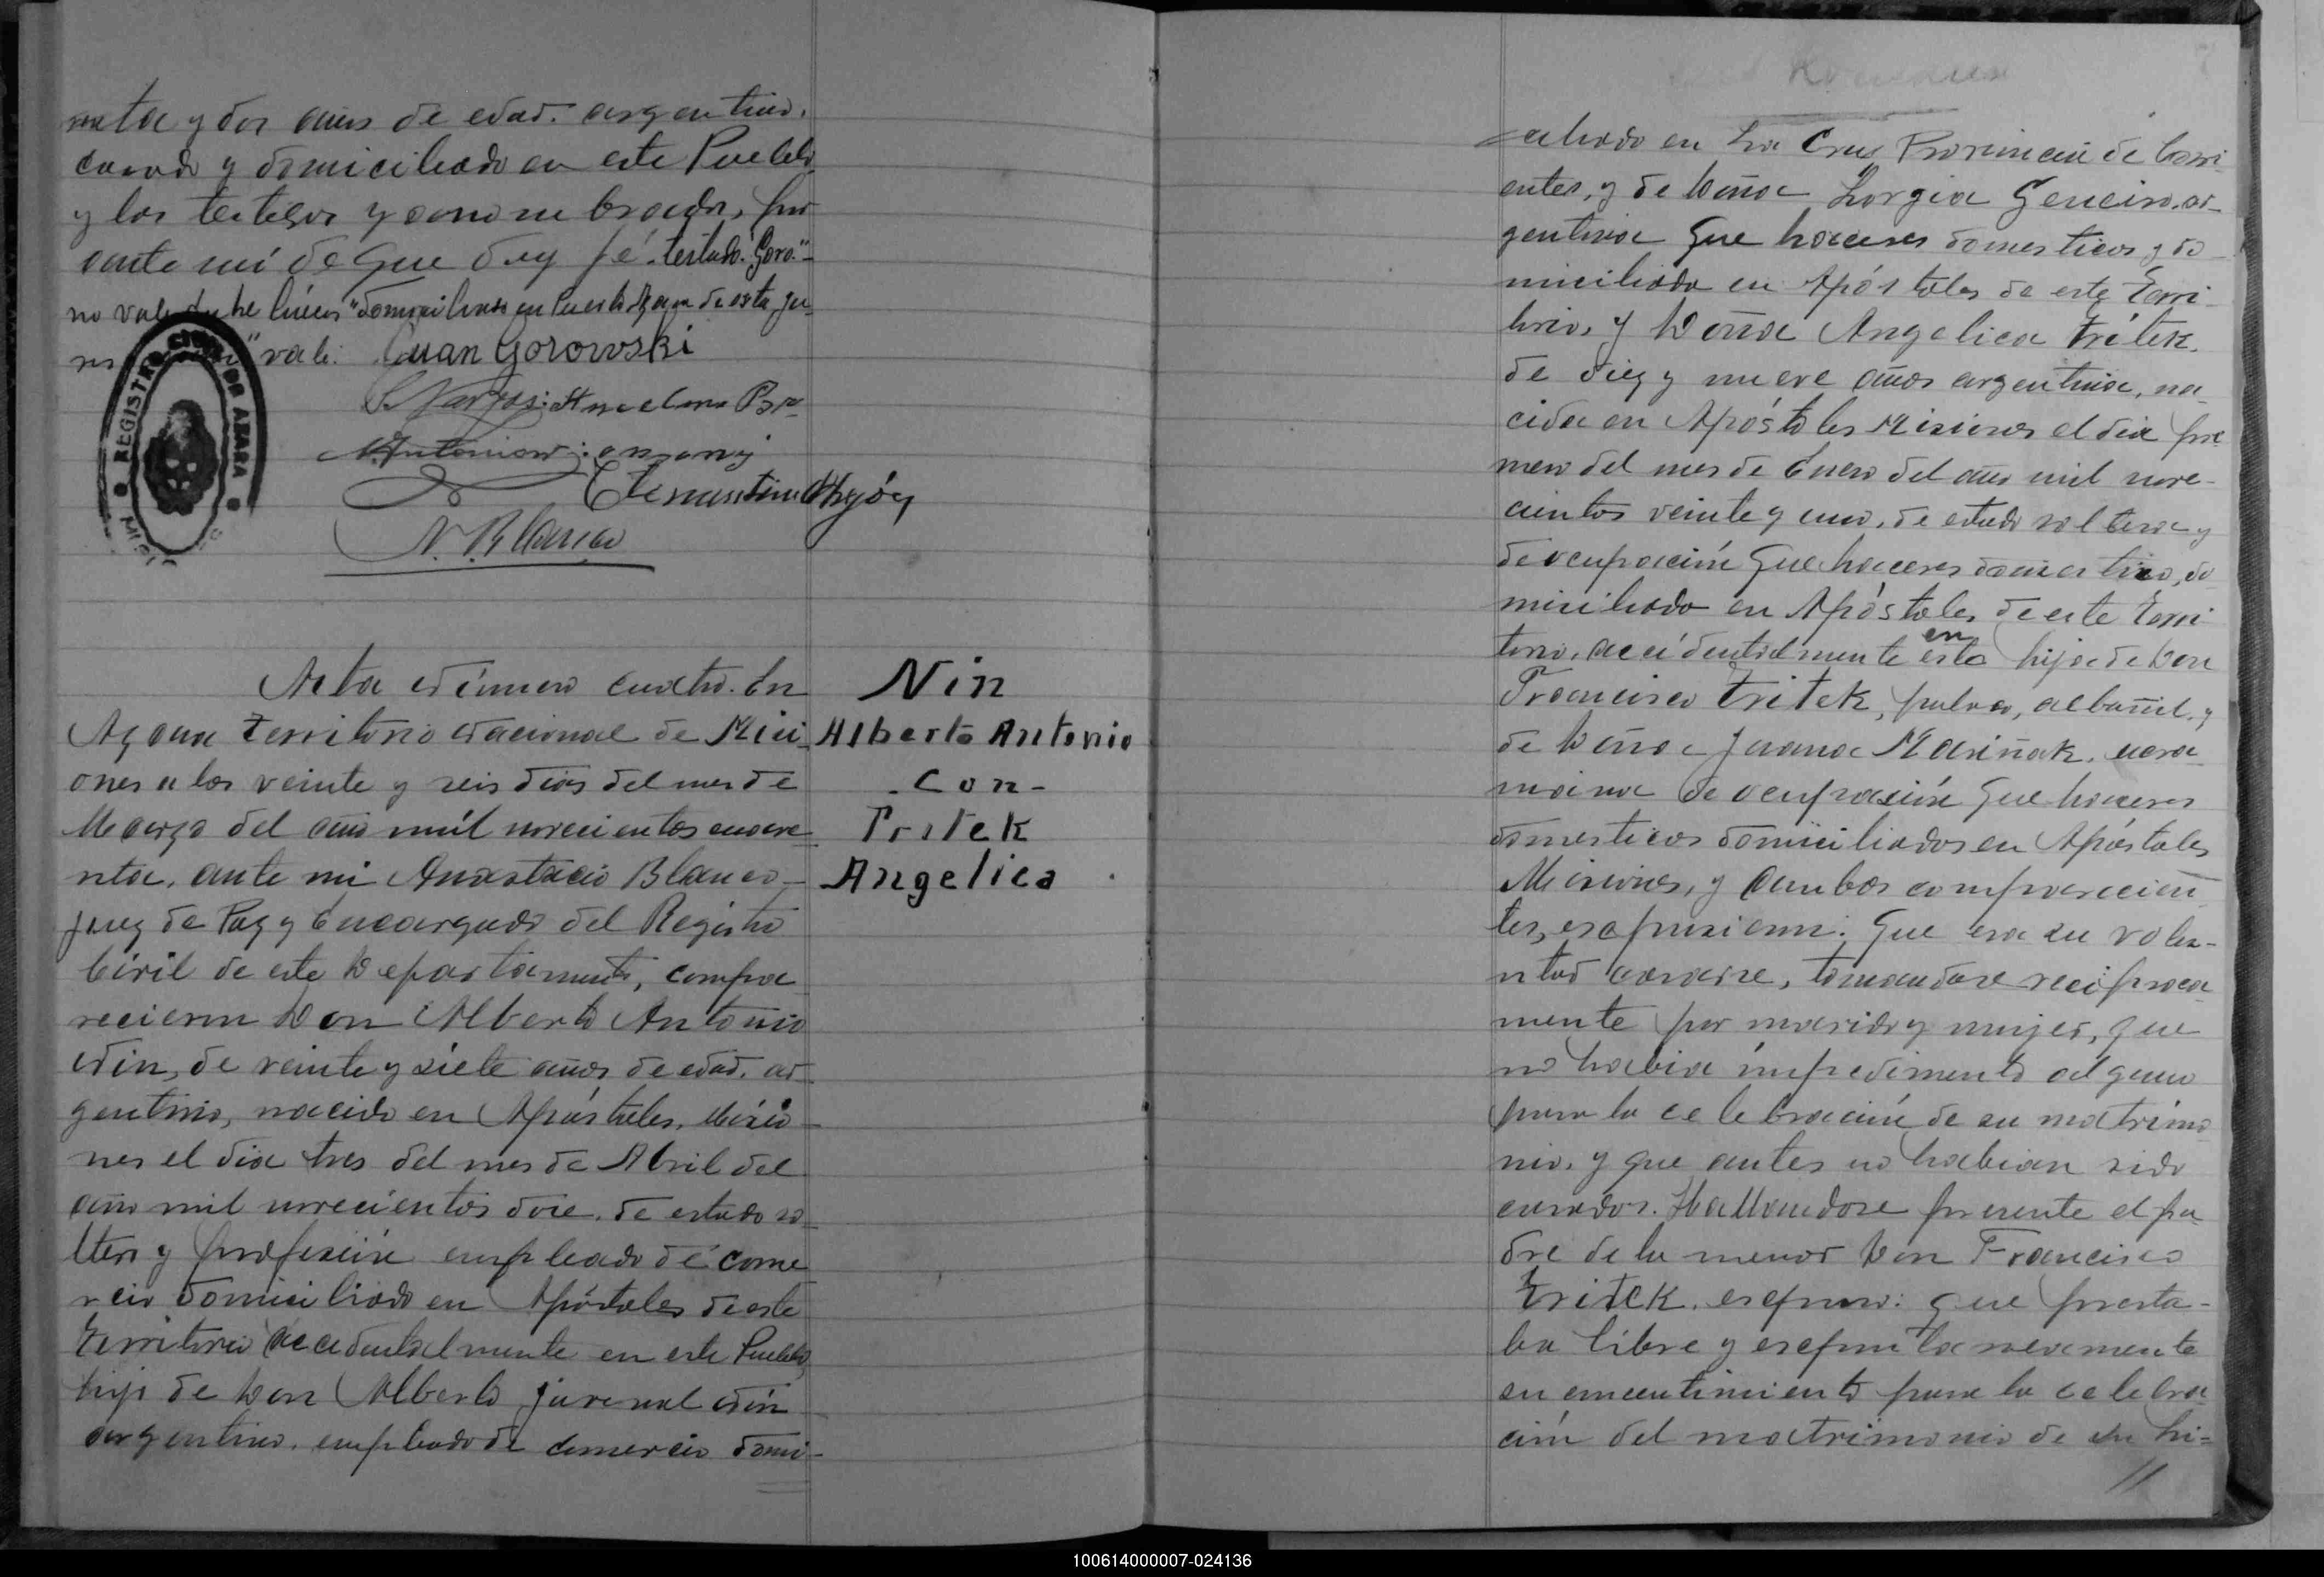 renta y dos años de edad. argentino.
casado y domiciliado en este Pueblo
y los testigos y a nombrados, por
ante mí de que doy fé. testado: "Goro"-
no vale. entre líneas "domiciliado en Puerto Azara de esta ju-
vale. Juan Gorowski
S. Vargas
REGISTRO CIVIL DE AZARA
N. Blanco
Acta número cuatro. En
Azara Territorio Nacional de Misi-
ones a los veinte y seis dias del mes de
Marzo del año mil novecientos cuare-
nta, ante mi Anastacio Blanco-
Juez de Paz y Encargado del Registro
Civil de este Departamento, compa
recieron Don Alberto Antonio
Nin, de veinte y siete años de edad. ar-
gentino, nacido en Apóstoles, Misio-
nes el dia tres del mes de Abril del
año mil novecientos doce. de estado so-
ltero y profesión empleado de come
rcio domiciliado en Apóstoles de este
Territorio accidentalmente en este Pueblo,
hijo de Don Alberto Juvenal Nin
argentino. empleado de comercio domi-
Nin
Alberto Antonio
-Con-
Tritek
Angelica
ciliado en La Cruz Provincia de Corri-
entes, y de Doña Lorgia Geneiro. ar-
gentina que haceres domesticos y do-
miciliada en Apóstoles de este Terri-
torio, y Doña Angelica Tritek.
de diez y nueve años argentina, na-
cida en Apóstoles Misiones el dia pri
mero del mes de Enero del año mil nove-
cientos veinte y uno, de estado soltera y
de ocupación que haceres domestico, do
miciliada en Apóstoles de este Terri
torio. accidentalmente en esta hija de Don
Francisco Tritek, polaco, albañil. y
de Doña Juana Mariñak. ucra
niana de ocupación que haceres
domesticos domiciliados en Apóstoles
Misiones, y ambos comparecien
tes, expusieron: Que era su volu-
ntad casarse, tomandose reciproca
mente por marido y mujer, que
no habia impedimento alguno
para la celebración de su matrimo
nio. y que antes no habian sido
casados. Hallandose presente el pa
dre de la menor Don Francisco
Tritek. expuso: que presta-
ba libre y espontaneamente
su consentimiento para la celebra
ción del matrimonio de su hi=
100614000007-024136